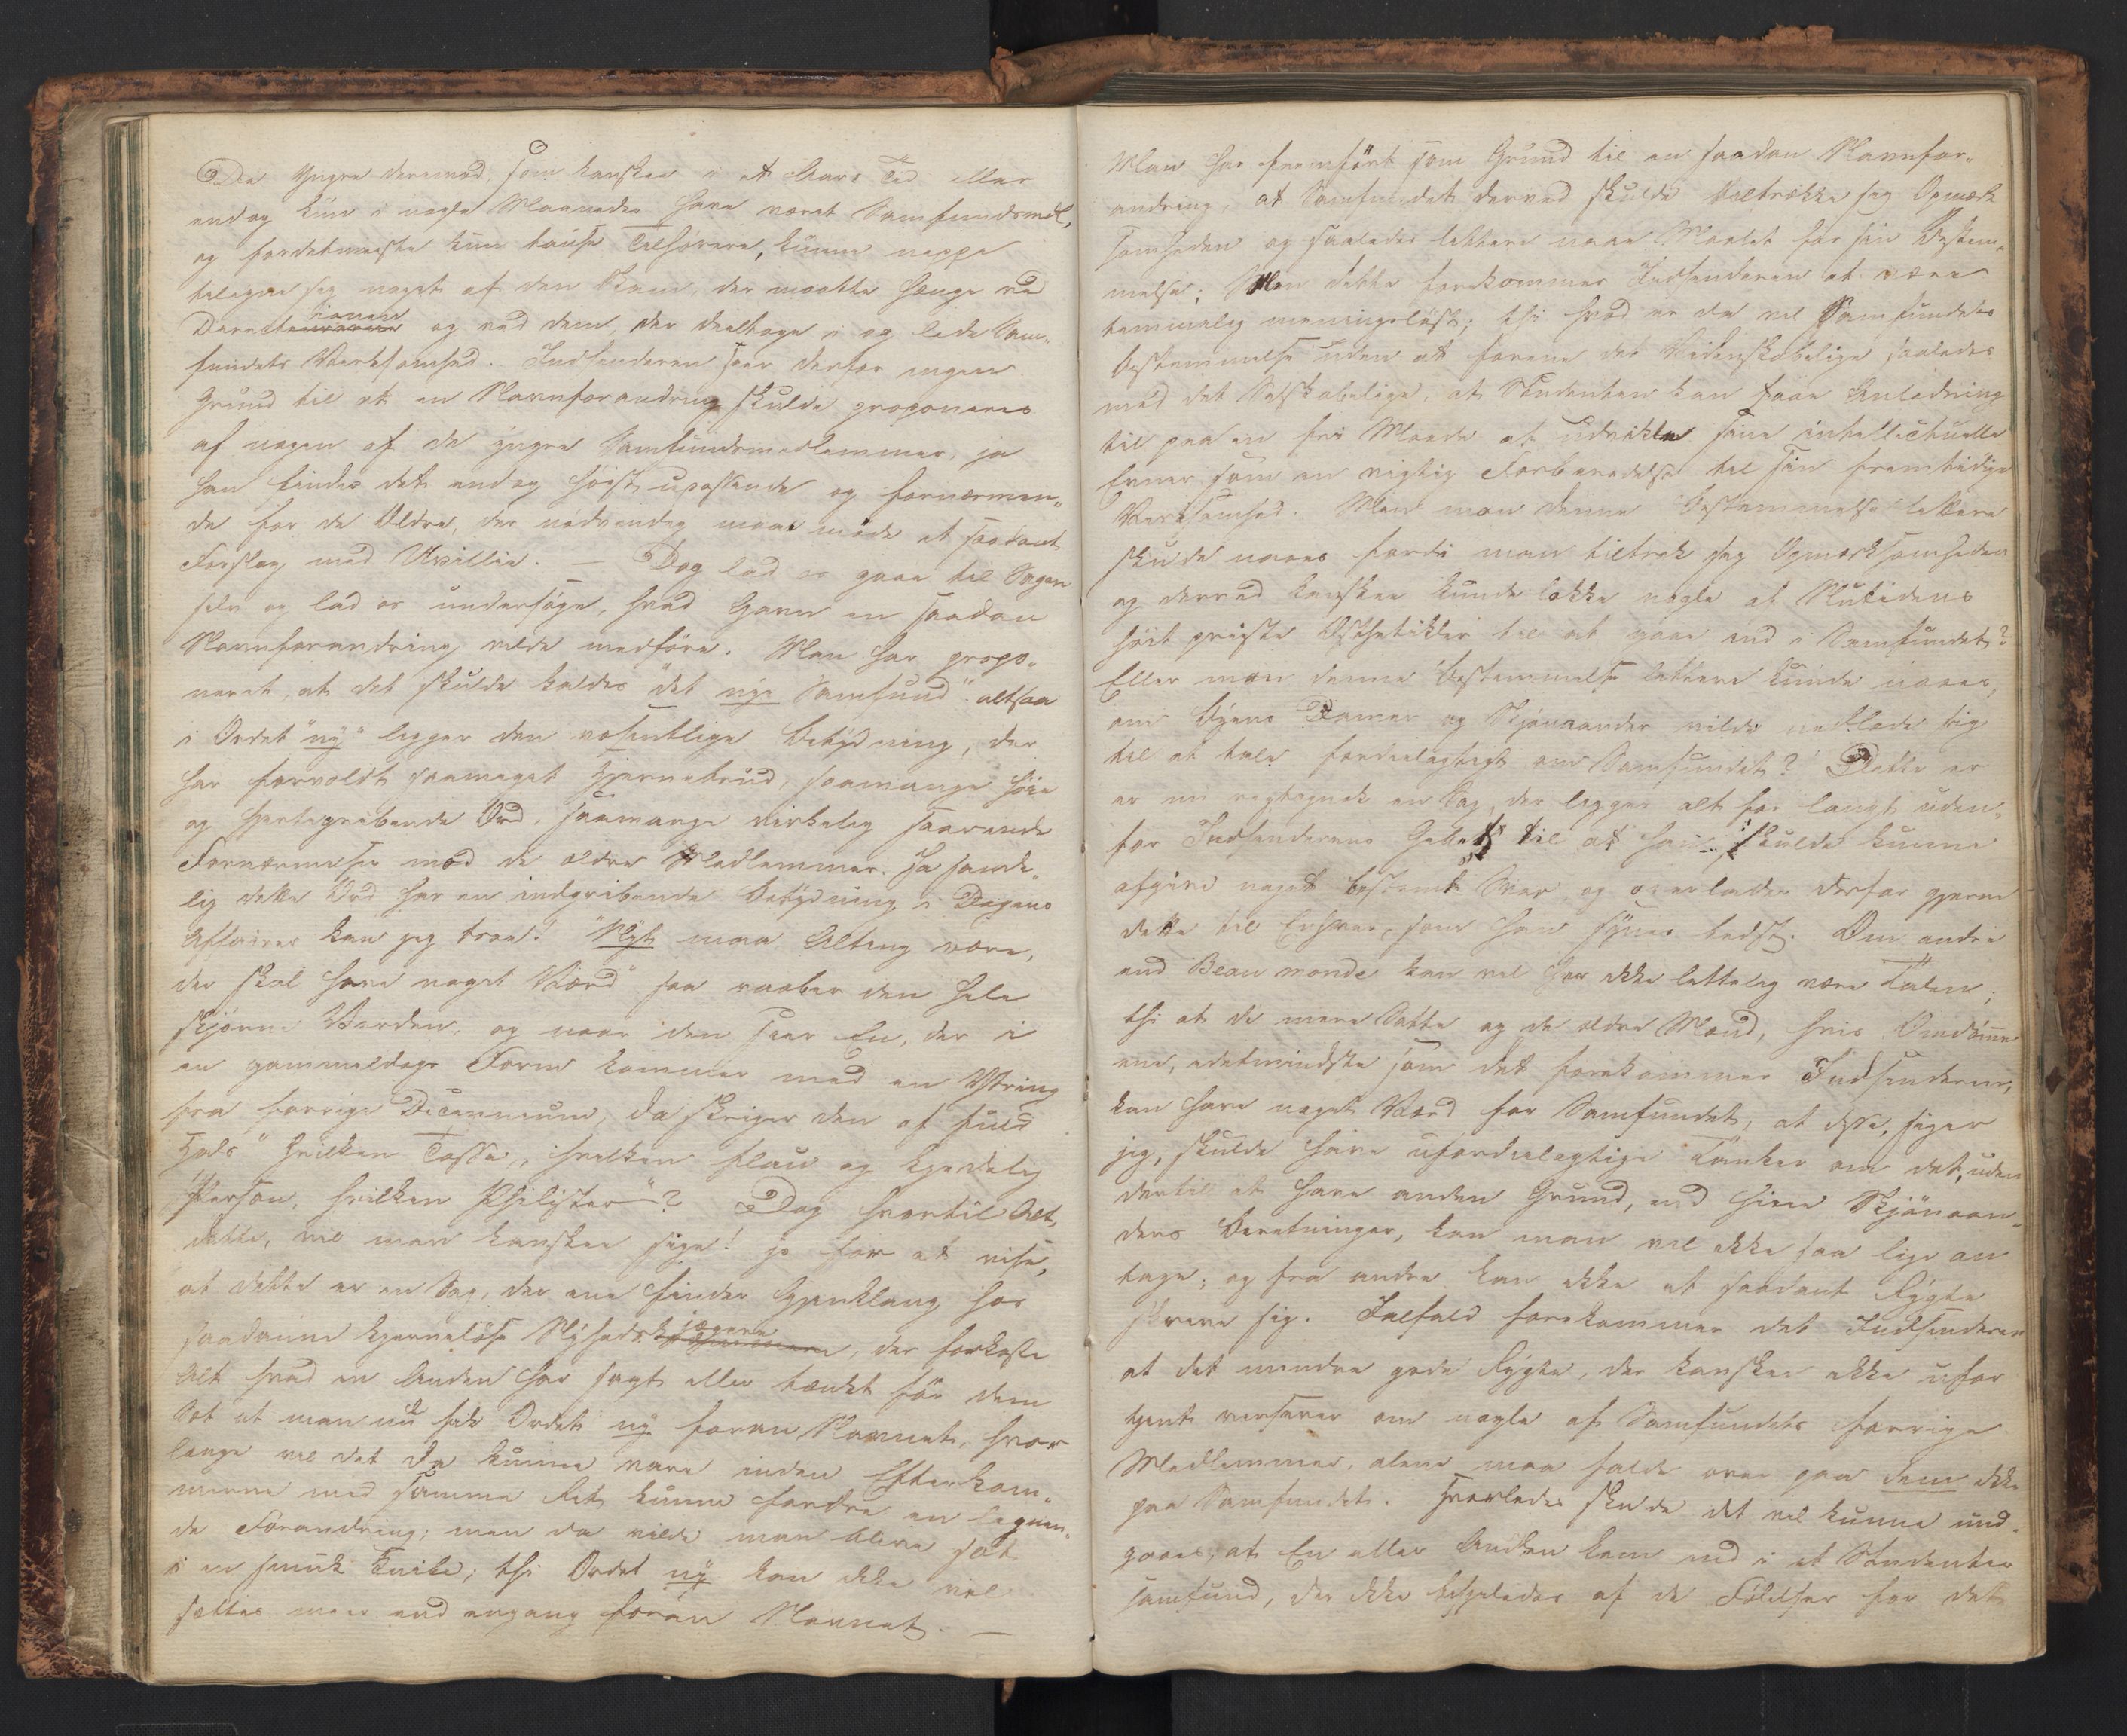 De Yngre derimod, som kanskee i et Aars Tid eller
endog kun i nogle Maaneder have været Samfundsmedl,
og fordetmeste kun tause Tilhørere, kunne neppe
tilegne sig noget af den Skam, der maatte hænge ved
Directeurerne ionen og ved dem, der deeltoge i og lede Sam-
fundets Virksomhed. Indsenderen seer derfor ingen
Grund til at en Navnforandring skulde proponeres
af nogen af de yngre Samfundsmedlemmer, ja
han finder det endog høist upassende og fornærmen-
de for de Ældre, der nødvendig maae møde et saadant
Forslag med Uvillie. — Dog lad os gaae til Sagen
selv og lad os undersøge, hvad Gavn en saadan
Navnforandring vilde medføre. Man har propo-
neret, at det skulde kaldes "det nye Samfund" altsaa
i Ordet "ny" ligger den væsentlige Betydning, der
har forvoldt saameget Hjernebrud, saamange høie
og hjertegribende Ord, saamange virkelig saarende
Fornærmelser mod de ældre Medlemmer. Ja sande-
lig dette Ord har en indgribende Betydning i Dagens
Affairer kan jeg troe! "Nyt maa Alting være,
der skal have noget Værd" saa raaber den hele
skjønne Verden, og naar den seer En, der i
en gammeldags Form kommer med en Yttring
fra forrige Decennium, da skriger den af fuld
Hals "hvilken Tosse, hvilken flau og kjedelig
Person, hvilken Philister"? Dog hvortil Alt
dette, vil man kanskee sige! jo for at vise,
at dette er en Sag, der ene finder Gjenklang hos
saadanne hjerneløse Nyheds jægere, der forkaste
Alt hvad en Anden har sagt eller tænkt før dem
Sæt at man nu fik Ordet ny foran Navnet, hvor
længe vil det da kunne vare inden Efterkom-
merne med samme Ret kunne fordre en lignen-
de Forandring; men da vilde man blive sat
i en smuk Knibe; thi Ordet ny kan ikke vel
sættes meer end engang foran Navnet. —
Man har fremført som Grund til en saadan Navnfor-
andring, at Samfundet derved skulde tiltrække sig Opmærk
somheden og saaledes lettere naae Maalet for sin Bestem-
melse; Men dette forekommer Indsenderen at være
temmelig meningsløst; thi hvad er da vel Samfundets
Bestemmelse uden at forene det Videnskabelige saaledes
med det Selskabelige, at Studenten kan faae Anledning
til paa en fri Maade at udvikle sine intellectuelle
Evner som en vigtig Forberedelse til sin fremtidige
Virksomhed. Men mon denne Bestemmelse lettere
skulde naaes fordi man tiltrak sig Opmærksomheden
og derved kanskee kunde lokke nogle af Nutidens
høit priste Æsthetikker til at gaae ind i Samfundet?
Eller mon denne Bestemmelse lettere kunde naaes,
om Byens Damer og Skjønaander vilde nedlade sig
til at tale fordeelagtigt om Samfundet? Dette er
er nu rigtignok en Sag, der ligger alt for langt uden-
for Indsenderens Gebet til at han skulde kunne
afgive noget bestemt Svar og overlader derfor gjerne
dette til Enhver, som han synes bedst. Om andre
end Beau monde kan vel her ikke lettelig være Talen;
thi at de mere Satte og de ældre Mænd, hvis Omdømme
ene, idetmindste som det forekommer Indsenderen,
kan have noget Værd for Samfundet, at disse, siger
jeg, skulde have ufordeelagtige Tanker om det, uden
dertil at have anden Grund, end hine Skjønaan-
ders Beretninger, kan man vel ikke saa lige an
tage; og fra andre kan ikke et saadant Rygte
skrive sig. Ialfald forekommer det Indsenderen
at det mindre gode Rygte, der kanskee ikke ufor
tjent verserer om nogle af Samfundets forrige
Medlemmer, alene maa falde over paa dem ikke
paa Samfundet. Hvorledes skulde det vel kunne und-
gaaes, at En eller Anden kom ind i et Studenter
samfund, der ikke besjeledes af de Følelser for det